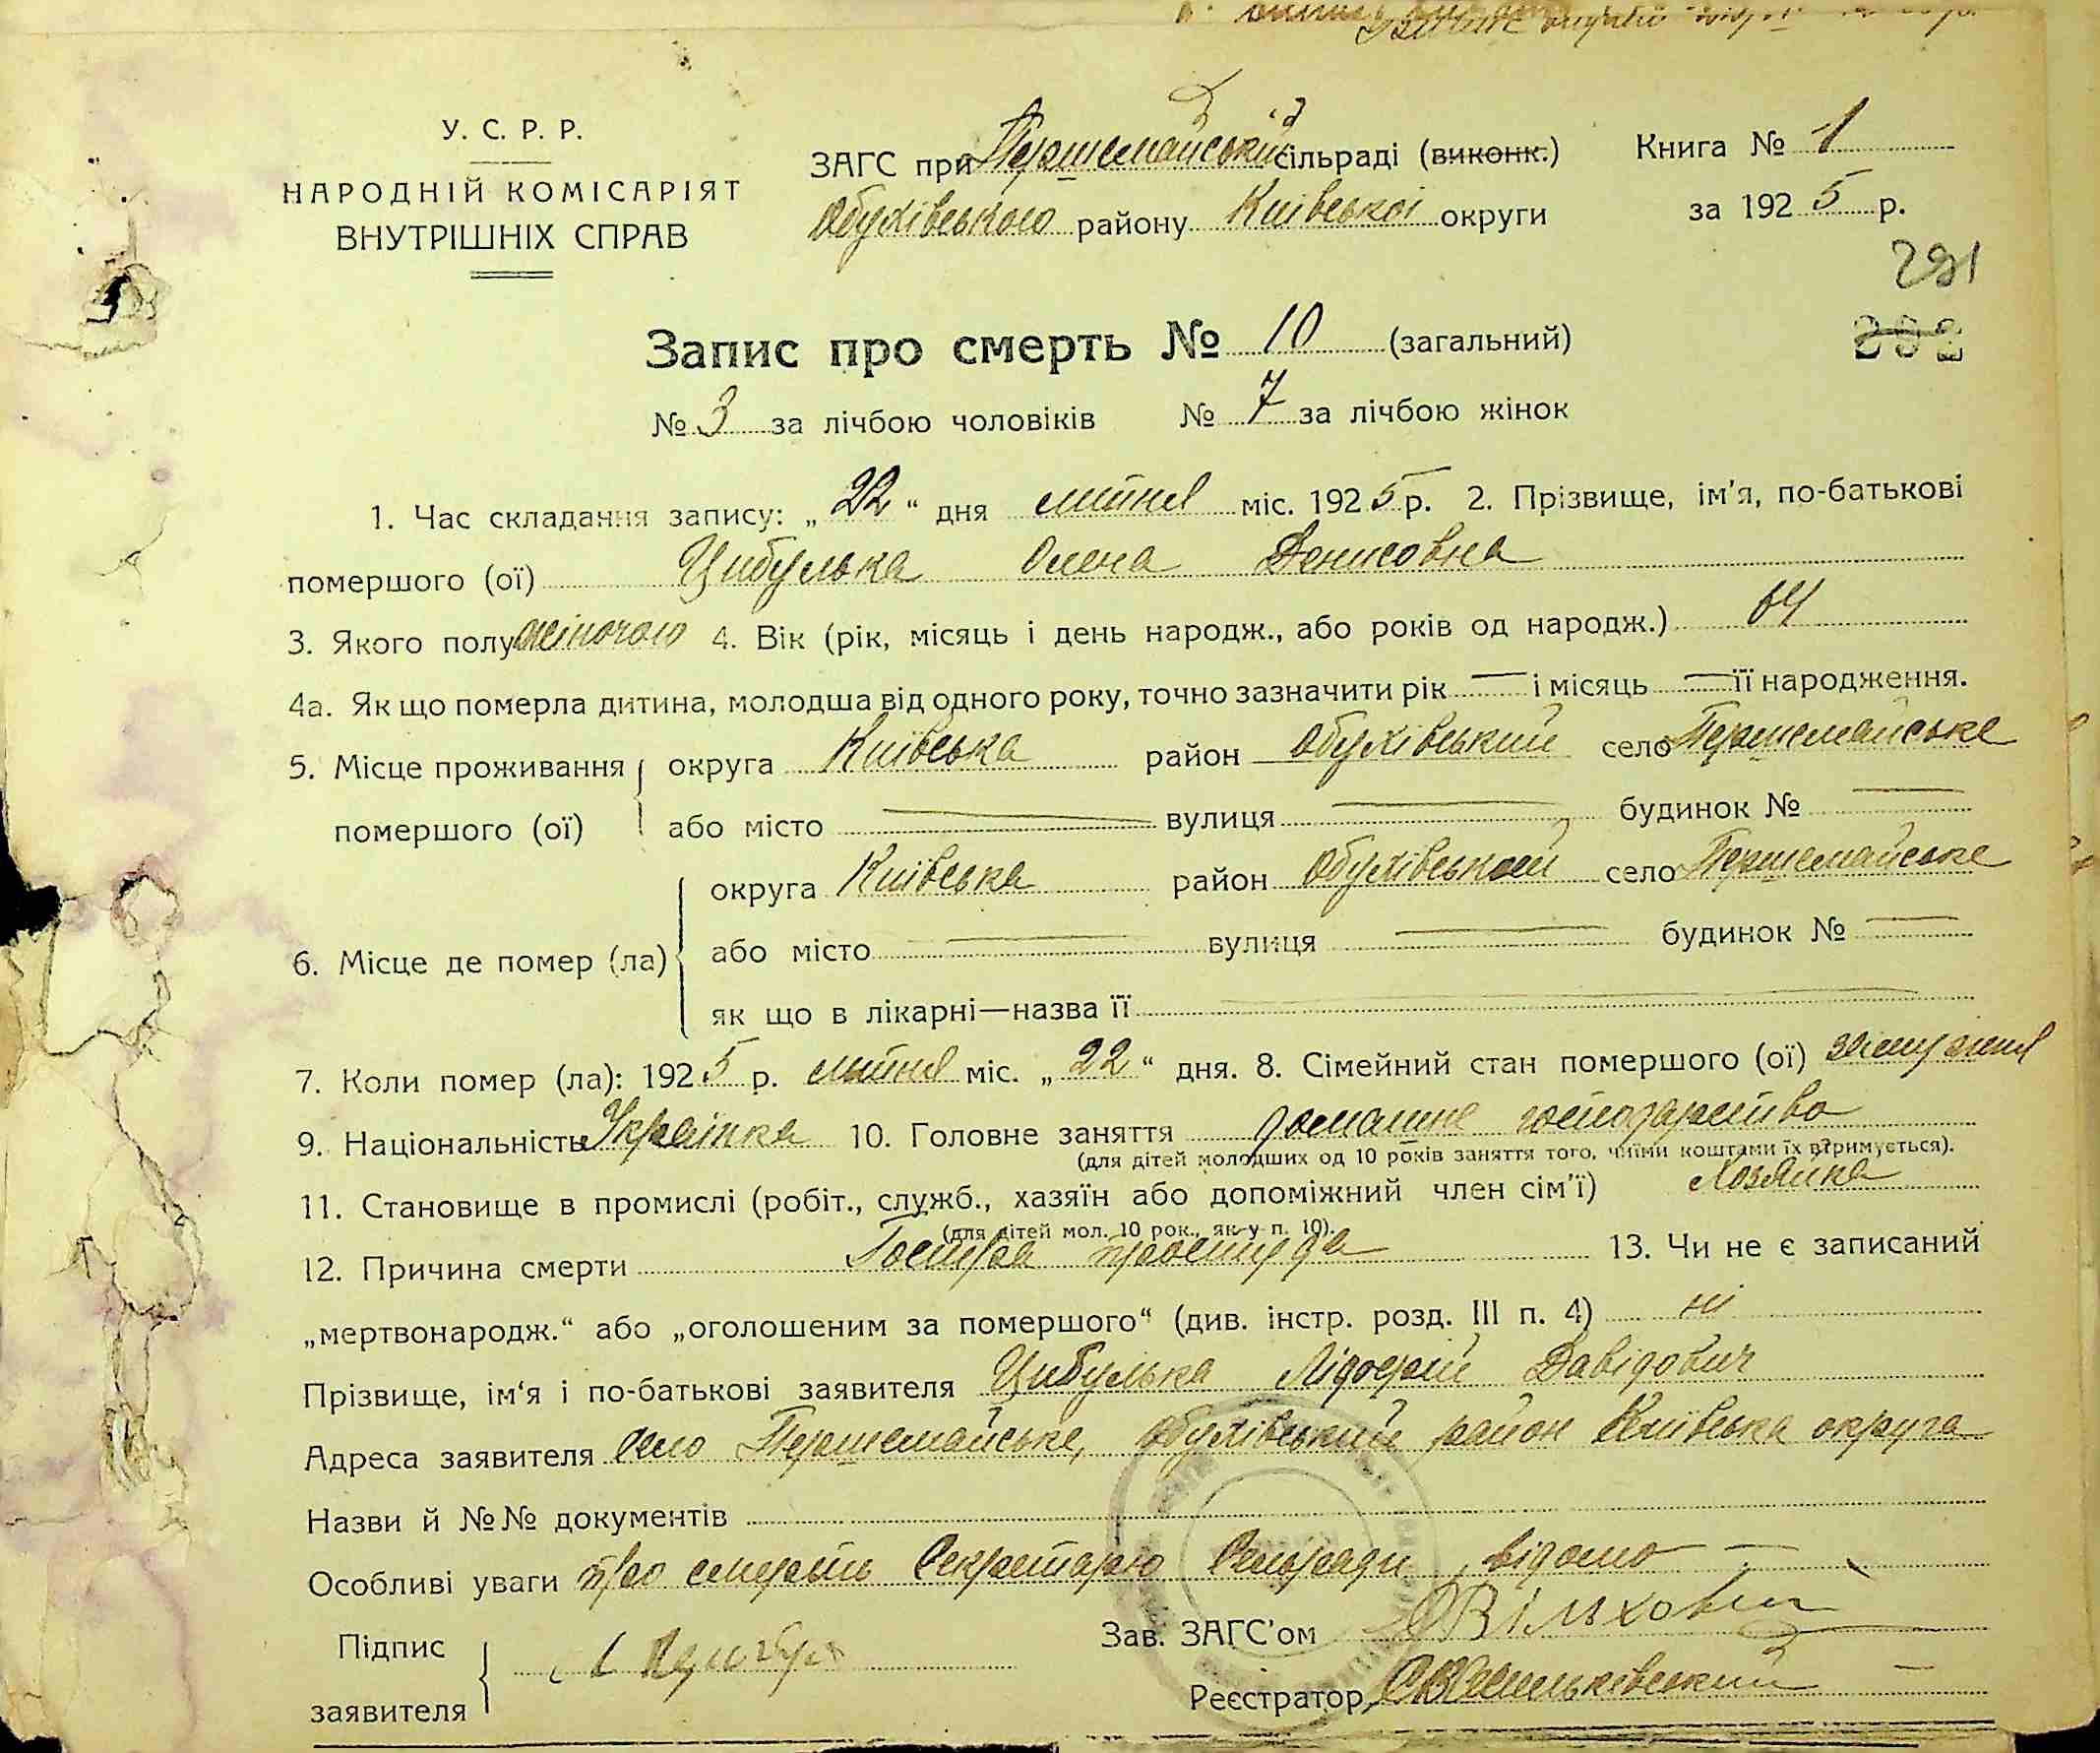 У. С. Р. Р.
НАРОДНІЙ КОМІСАРІЯТ
ВНУТРІШНІХ СПРАВ
ЗАГС при Першемайській сільраді (виконк.)
Обухівського району Київської округи
Книга № 1
за 1925 р.
291
Запис про смерть № 10 (загальний)
№ 3 за лічбою чоловіків № 7 за лічбою жінок
1. Час складання запису: „22“ дня липня міс. 1925 р. 2. Прізвище, ім'я, по-батькові
помершого (ої) Цибулька Олена Денисовна
3. Якого полу жіночого 4. Вік (рік, місяць і день народж., або років од народж.) 64
4а. Як що померла дитина, молодша від одного року, точно зазначити рік — і місяць — її народження.
5. Місце проживання округа Київська район Обухівський село Першемайське
помершого (ої) або місто — вулиця — будинок № —
округа Київська район Обухівський село Першемайське
6. Місце де помер (ла) або місто — вулиця — будинок № —
як що в лікарні—назва її —
7. Коли помер (ла): 1925 р. липня міс. „22“ дня. 8. Сімейний стан помершого (ої)
9. Національність Українка 10. Головне заняття домашне господарство
(для дітей молодших од 10 років заняття того, чиїми коштами їх втримується).
11. Становище в промислі (робіт., служб., хазяїн або допоміжний член сім'ї) Хозяйка
(для дітей мол. 10 рок., як у п. 10).
12. Причина смерти Гостра простуда 13. Чи не є записаний
„мертвонародж.“ або „оголошеним за помершого“ (див. інстр. розд. III п. 4) ні
Прізвище, ім'я і по-батькові заявителя Цибулька Давідович
Адреса заявителя село Першемайське, Обухівський район Київська округа
Назви й №№ документів
Особливі уваги про смерть Секретарю Сельради відомо —
Підпис
заявителя
Зав. ЗАГС'ом
Реєстратор